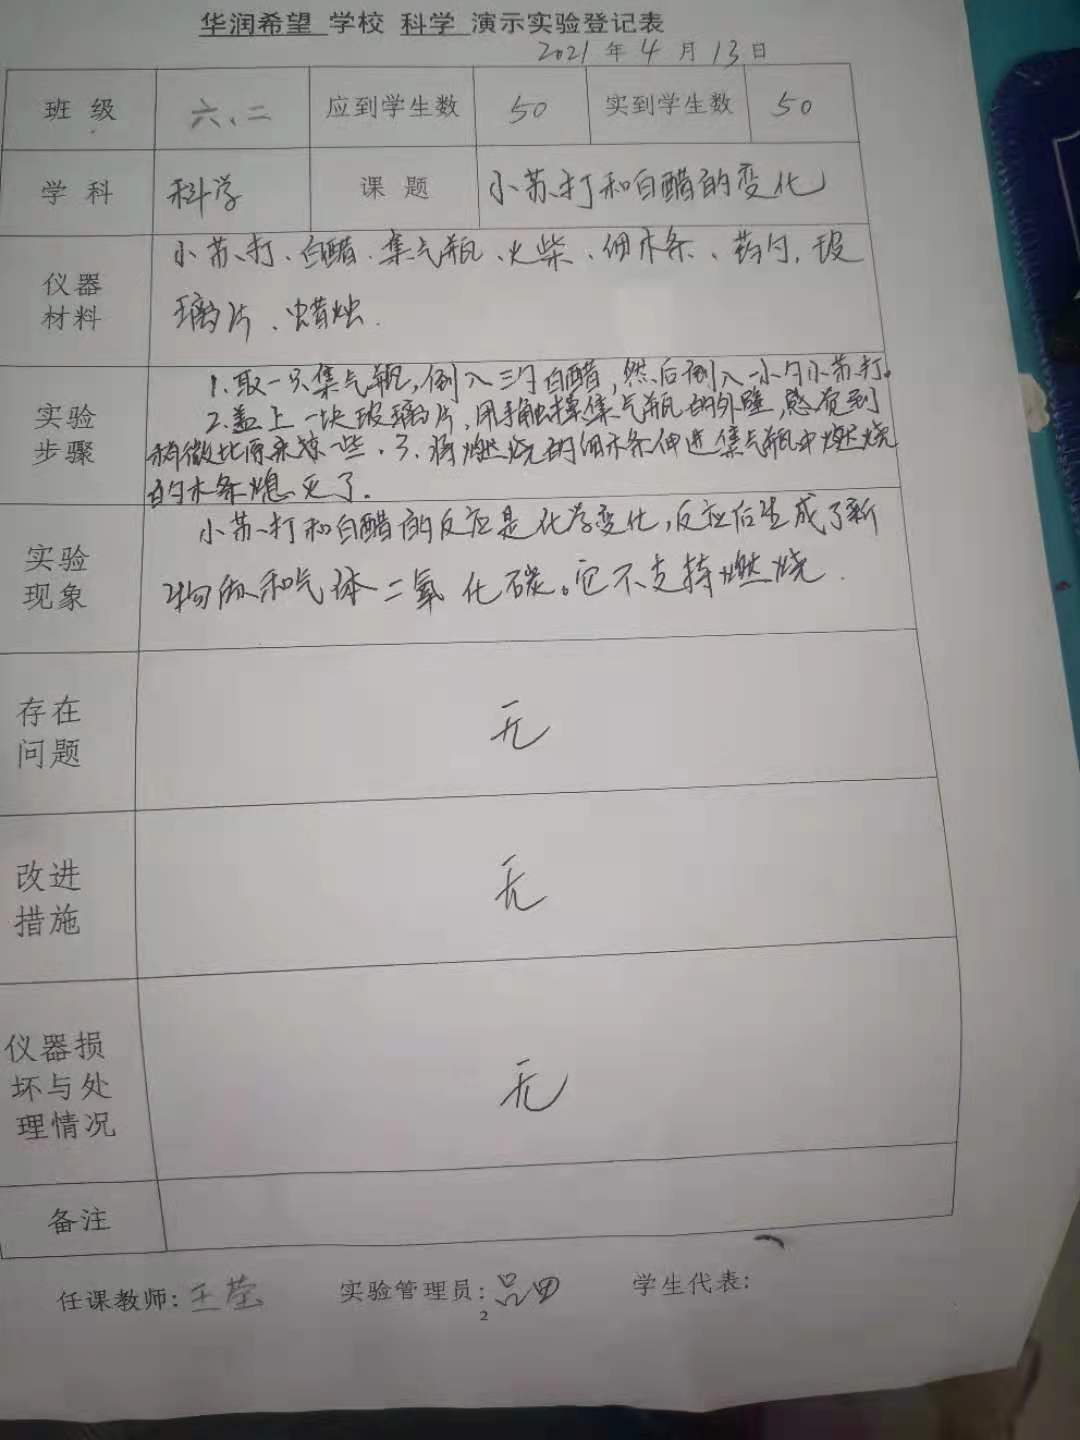 华润希望 学校 科学 演示实验登记表
2021 年 4 月 13 日
班 级 六、二 应到学生数 50 实到学生数 50
学 科 科学 课 题 小苏打和白醋的变化
仪器
材料
小苏打、白醋、集气瓶、火柴、细木条、药勺、玻
璃片、蜡烛.
实验
步骤
1.取一只集气瓶,倒入三勺白醋,然后倒入一小勺小苏打。
2.盖上一块玻璃片,用手触摸集气瓶的外壁,感觉到
稍微比原来凉一些.3.将燃烧的细木条伸进集气瓶中燃烧
的木条熄灭了.
实验
现象
小苏打和白醋的反应是化学变化,反应后生成了新
物质和气体二氧化碳。它不支持燃烧.
存在
问题
无
改进
措施
无
仪器损
坏与处
理情况
无
备注
任课教师: 王莹 实验管理员: 学生代表:
2